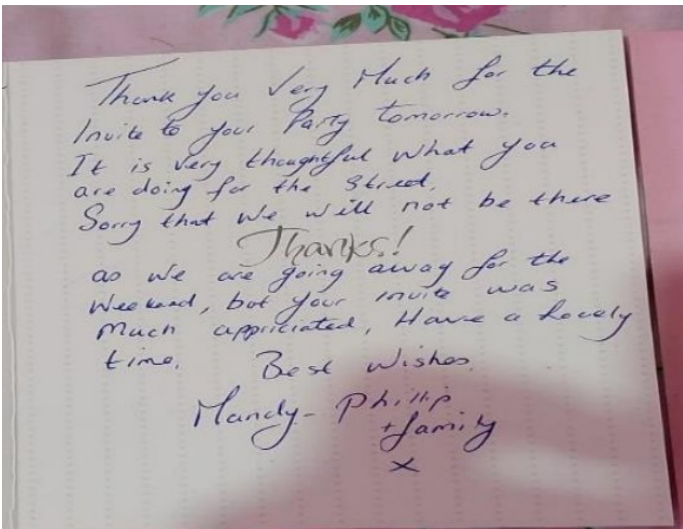 Thank you Very Much for the
Invite to your Party tomorrow.
It is very thoughtful what you
are doing for the Street.
Sorry that we will not be there
Thanks!
as we are going away for the
Weekend, but your invite was
Much appriciated, Have a Lovely
time. Best Wishes.
Mandy - Phillip
+ family
x